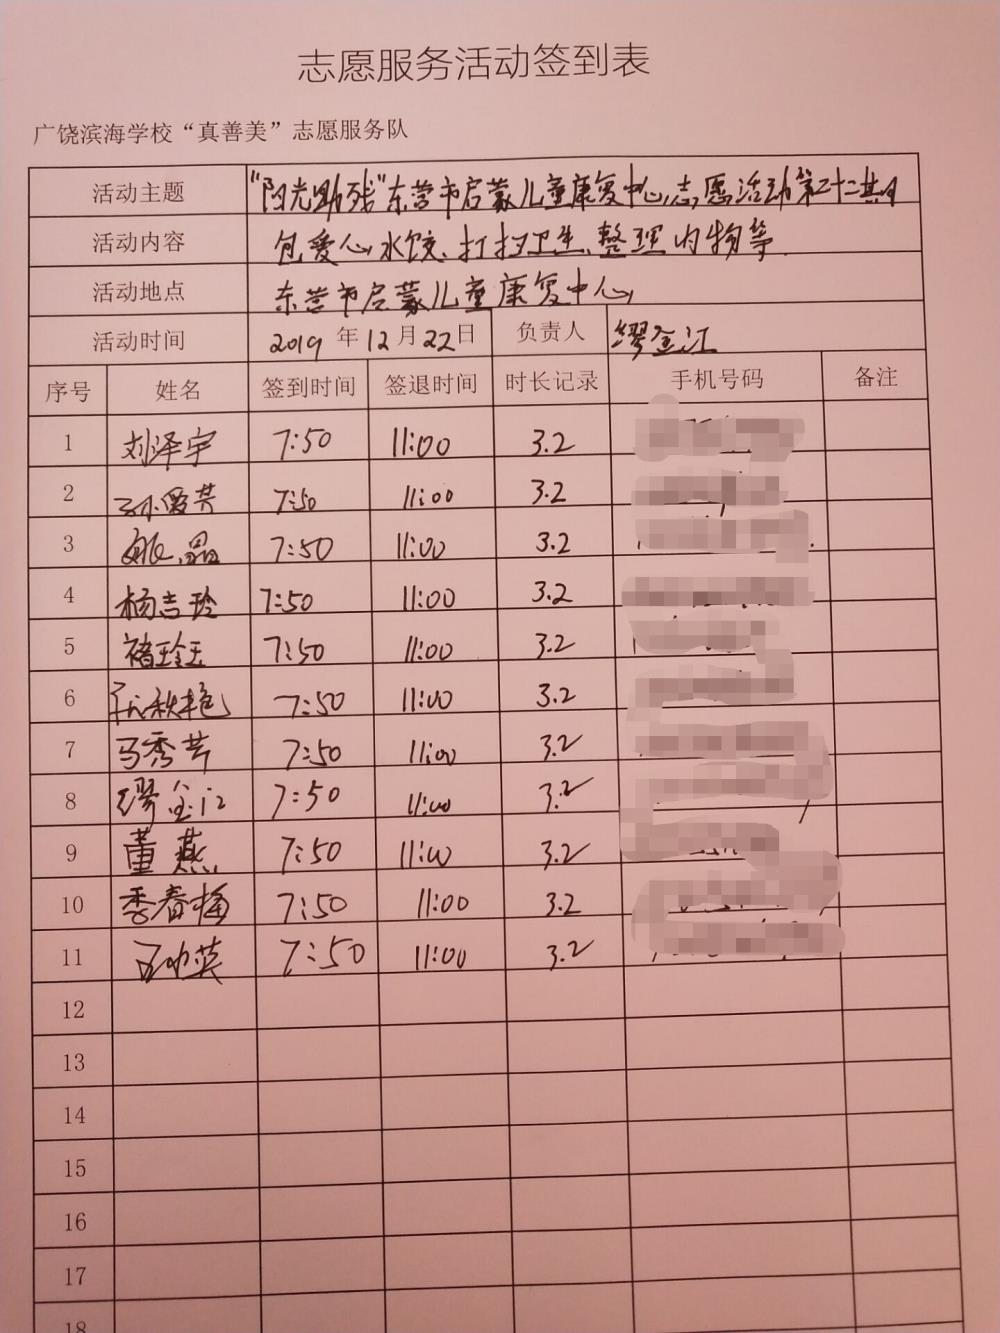 志愿服务活动签到表
广饶滨海学校“真善美”志愿服务队
活动主题 “阳光助残”东营市启蒙儿童康复中心志愿活动第二十二期
活动内容 包爱心水饺、打扫卫生、整理内物等.
活动地点 东营市启蒙儿童康复中心
活动时间 2019 年 12 月 22 日 负责人 缪金江
序号 姓名 签到时间 签退时间 时长记录 手机号码 备注
1 刘泽宇 7:50 11:00 3.2
2 孙爱芸 7:50 11:00 3.2
3 姚晶 7:50 11:00 3.2
4 杨吉玲 7:50 11:00 3.2
5 褚玲玉 7:50 11:00 3.2
6 秋艳 7:50 11:00 3.2
7 马秀芹 7:50 11:00 3.2
8 缪金江 7:50 11:00 3.2
9 董燕 7:50 11:00 3.2
10 季春梅 7:50 11:00 3.2
11 7:50 11:00 3.2
12
13
14
15
16
17
18